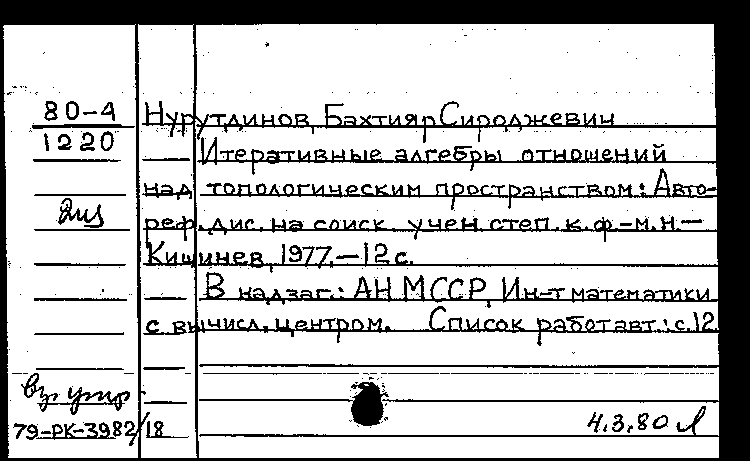 80-4 Нурутдинов, Бахтияр Сироджевич
1220 Итеративные алгебры отношений
над топологическим пространством: Авто-
реф. дис. на соиск. учен. степ. к. ф.-м. н.—
Кишинев, 1977.—12 с.
В надзаг.: АН МССР, Ин-т математики
с вычисл. центром. Список работ авт.: с. 12
79-РК-3982/18
4.3.80